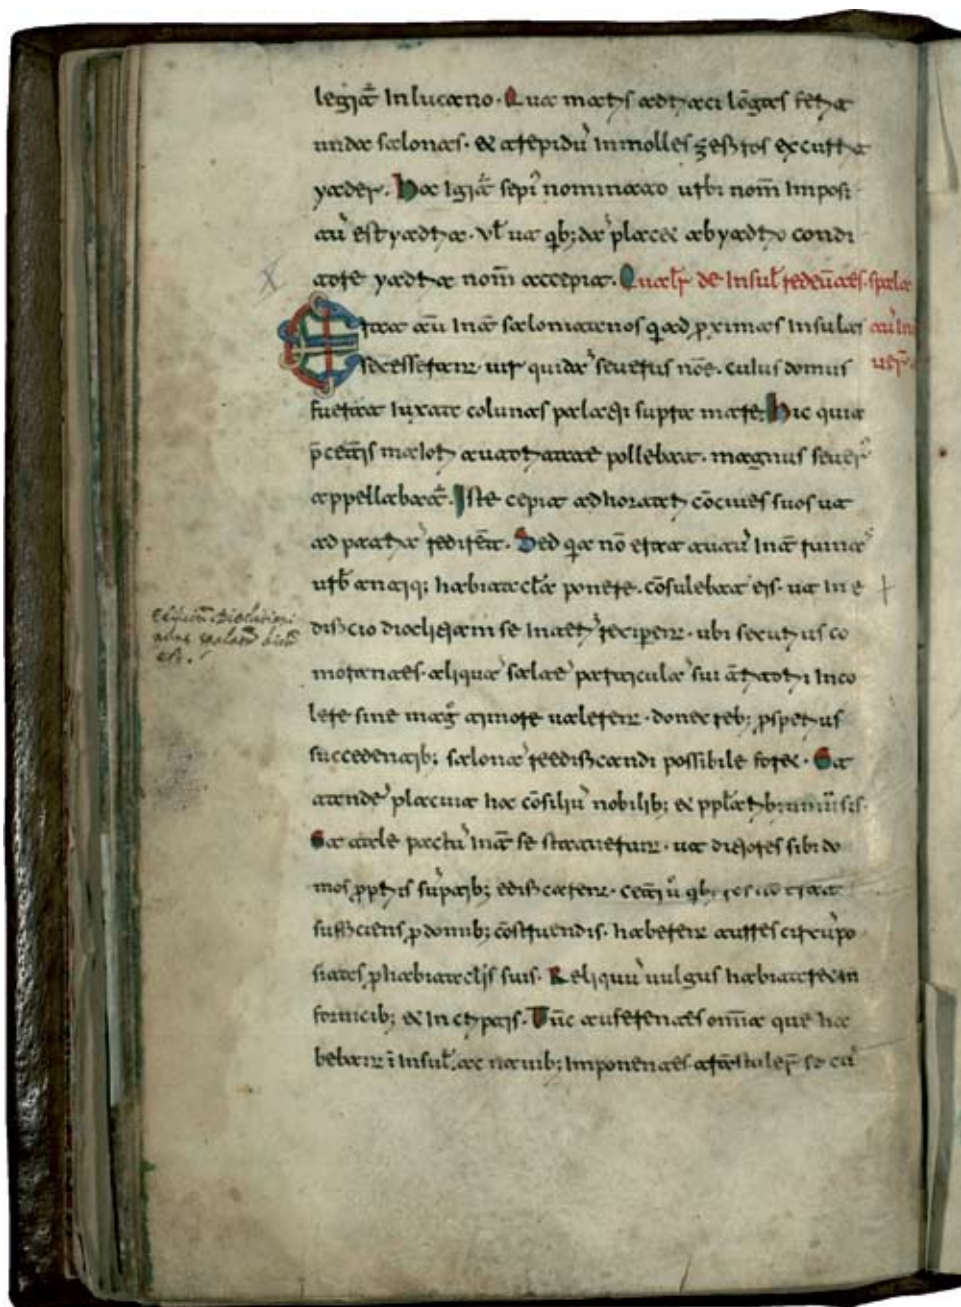 legit̃ In lucano. Qua maris adriaci lõgas ferit
unda salonas. et tepidũ In molles zefiros excurrit
yader. hac Igit̃ nom̃ Imposi
tũ est yadria. vl̃ ut qb; dã placet ab yadrio condi
tore yadria nom̃ accepit. Qualr̃ de Insul̃ redeũtes. spala
Erat aũ Int̃ salonitanos qi ad pximas Insulas tũ Int̃
secesserant. uir quidã seuerus nõe. cuius domus uer̃.
fuerat iuxta colunas palatii supra mare. hic quia
p̃ cet̃is maiori auctoritate pollebat. magnus seuer̃
appellabat̃. Iste cepit adhortari cõciues suos ut
ad patriã redirẽt. Sed qa nõ erat tutũ Int̃ ruinas
urb̃ antiq; habitacl̃a ponere. cõsulebat eis. ut In e
dificio diocliciani se Intẽrĩ recip̃ent. ubi securius co
morantes. aliquã saltẽ particulã sui t̃ritorii Inco
lere sine mag̃ timore ualerent. donec reb; psperius
succedentib; salonã reedificandi possibile foret. Et
tandẽ placuit hoc cõsiliũ nobilib; et pplarib; uniũsis.
Et tale pactũ Int̃ se statuerunt. ut ditiores sibi do
mos ppriis sũptib; edificarent. cet̃i ũ qb; res nõ erat
sufficiens p domib; cõstruendis. haberent turres circũpo
sitas p habitaclis suis. Reliquũ uulgus habitaret in
fornicib; et In criptis. Tũc auferentes omĩa que ha
bebant ĩ Insul̃. ac nauib; Imponentes se cũ